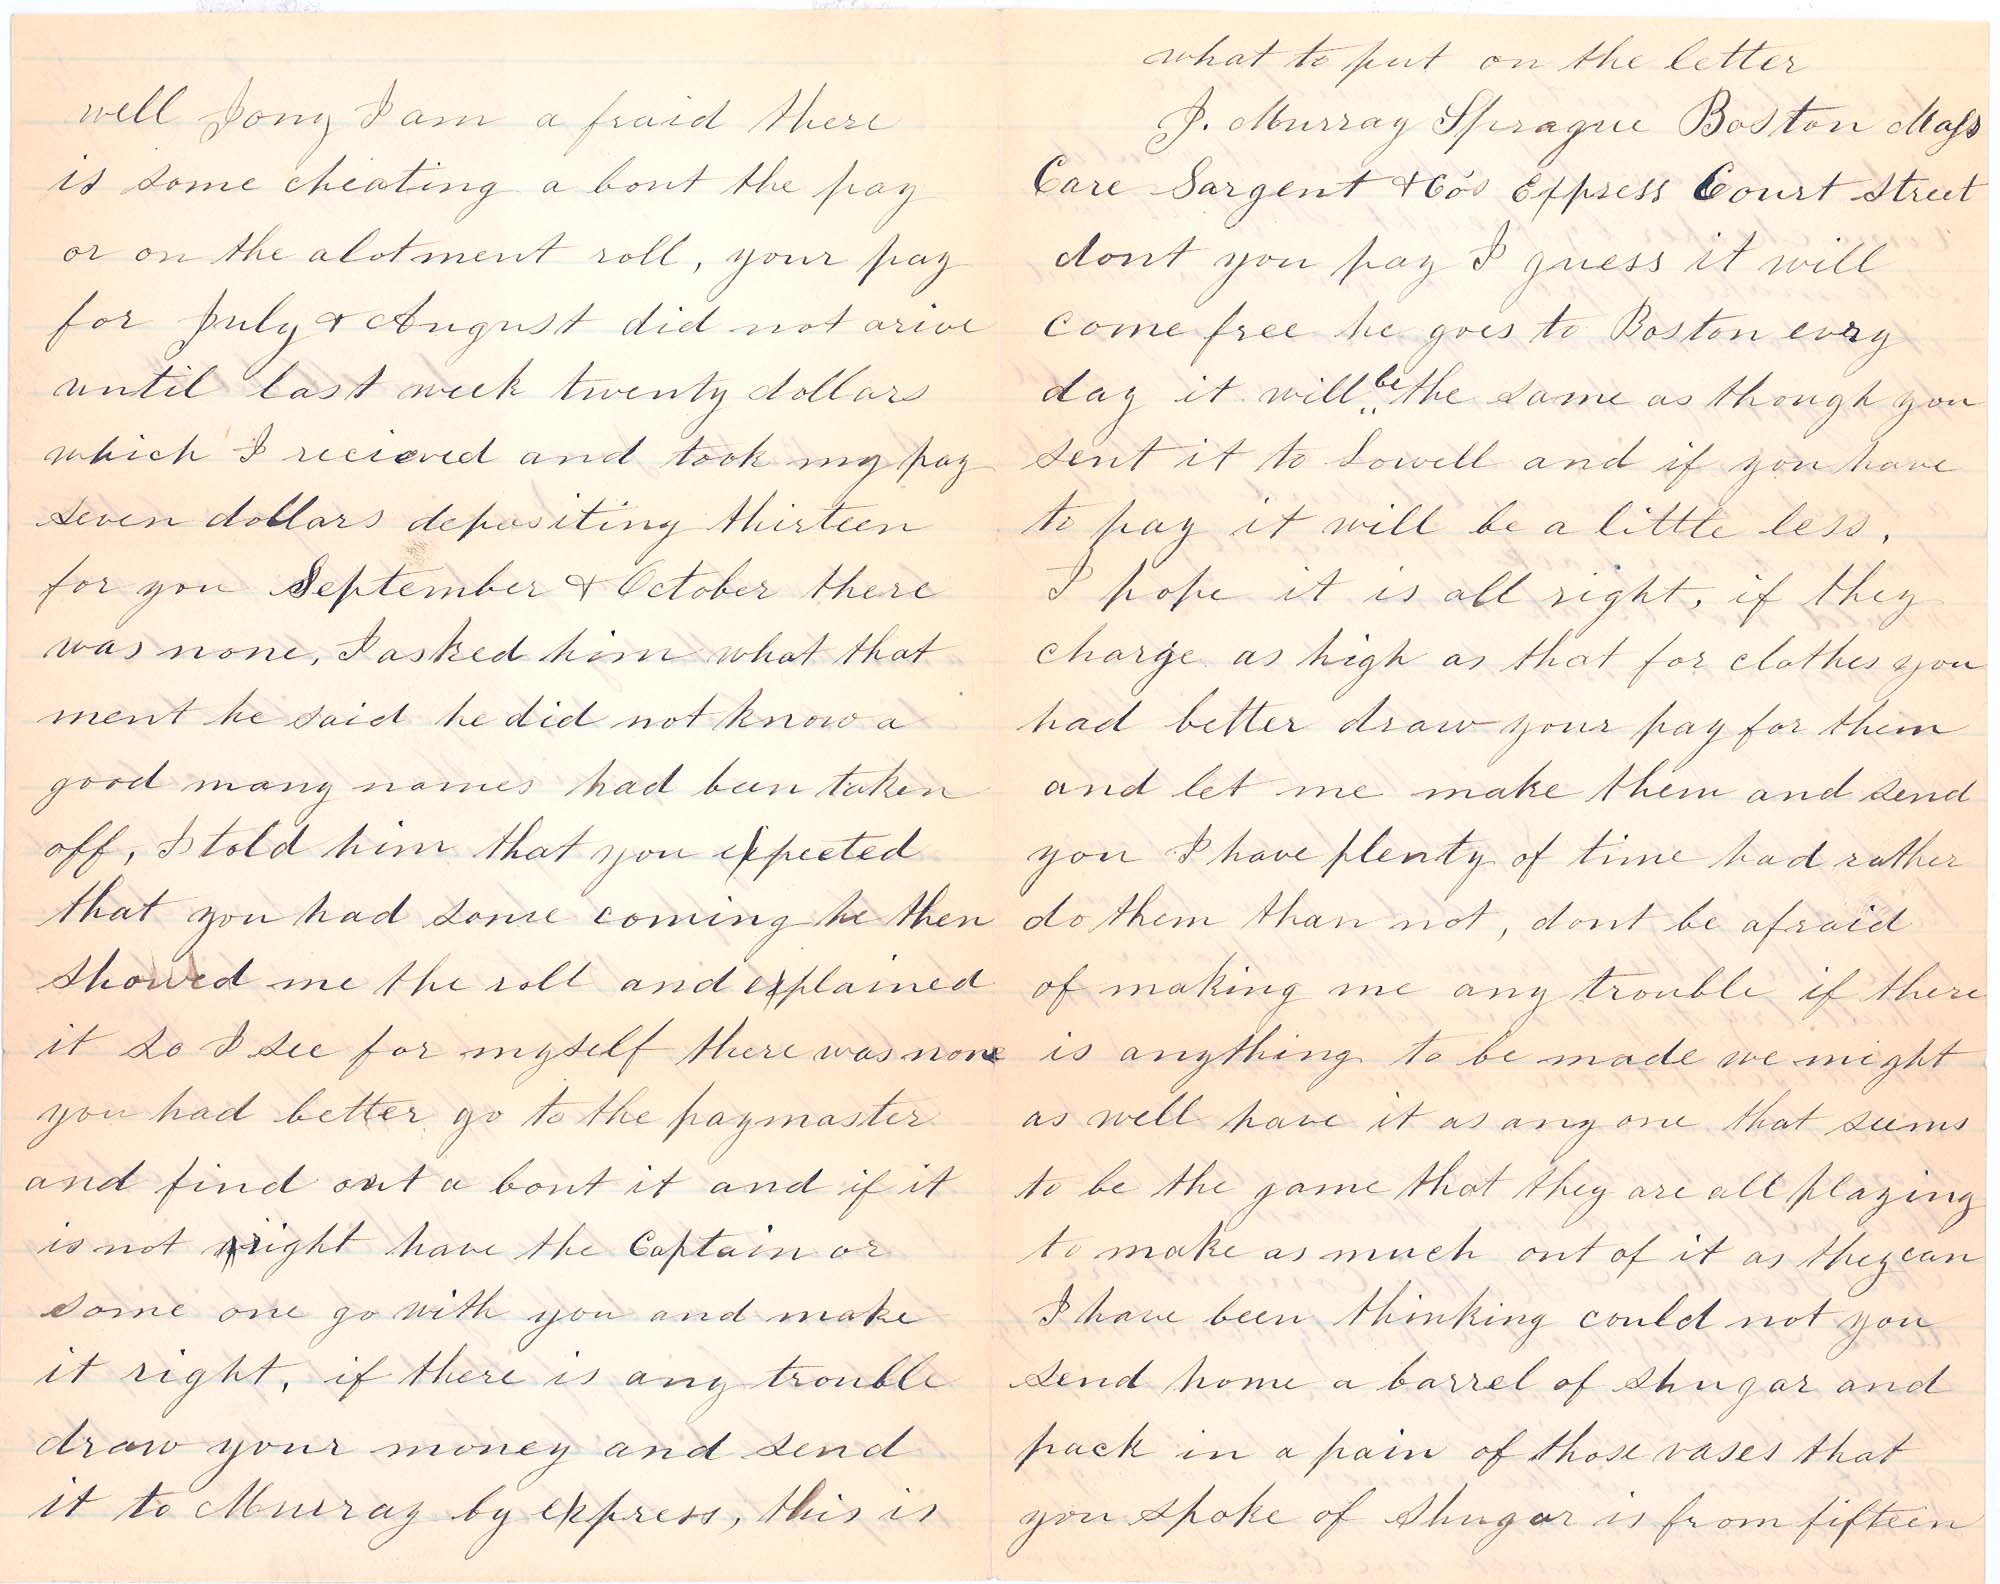 well Jony I am a fraid there
is some cheating a bout the pay
or on the alotment roll, your pay
for July & August did not arive
until last week twenty dollars
which I recieved and took my pay
seven dollars depositing thirteen
for you September & October there
was none, I asked him what that
ment he said he did not know a
good many names had been taken
off, I told him that you expected
that you had some coming he then
showed me the roll and explained
it so I see for myself there was none
you had better go to the paymaster
and find out a bout it and if it
is not right have the Captain or
some one go with you and make
it right, if there is any trouble
draw your money and send
it to Murray by express, this is
what to put on the letter
J. Murray Sprague Boston Mass
Care Sargent & Co's Express Court Street
dont you pay I guess it will
come free he goes to Boston every
day it will be the same as though you
sent it to Lowell and if you have
to pay it will be a little less,
I hope it is all right, if they
charge as high as that for clothes you
had better draw your pay for them
and let me make them and send
you I have plenty of time had rather
do them than not, dont be afraid
of making me any trouble if there
is anything to be made we might
as well have it as any one that seems
to be the game that they are all playing
to make as much out of it as they can
I have been thinking could not you
send home a barrel of shugar and
pack in a pain of those vases that
you spoke of Shugar is from fifteen